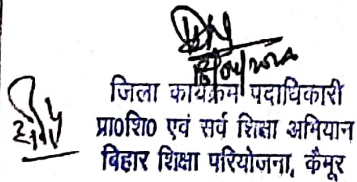 जिला कार्यक्रम पदाधिकारी
प्रा०शि० एवं सर्व शिक्षा अभियान
बिहार शिक्षा परियोजना, कैमूर